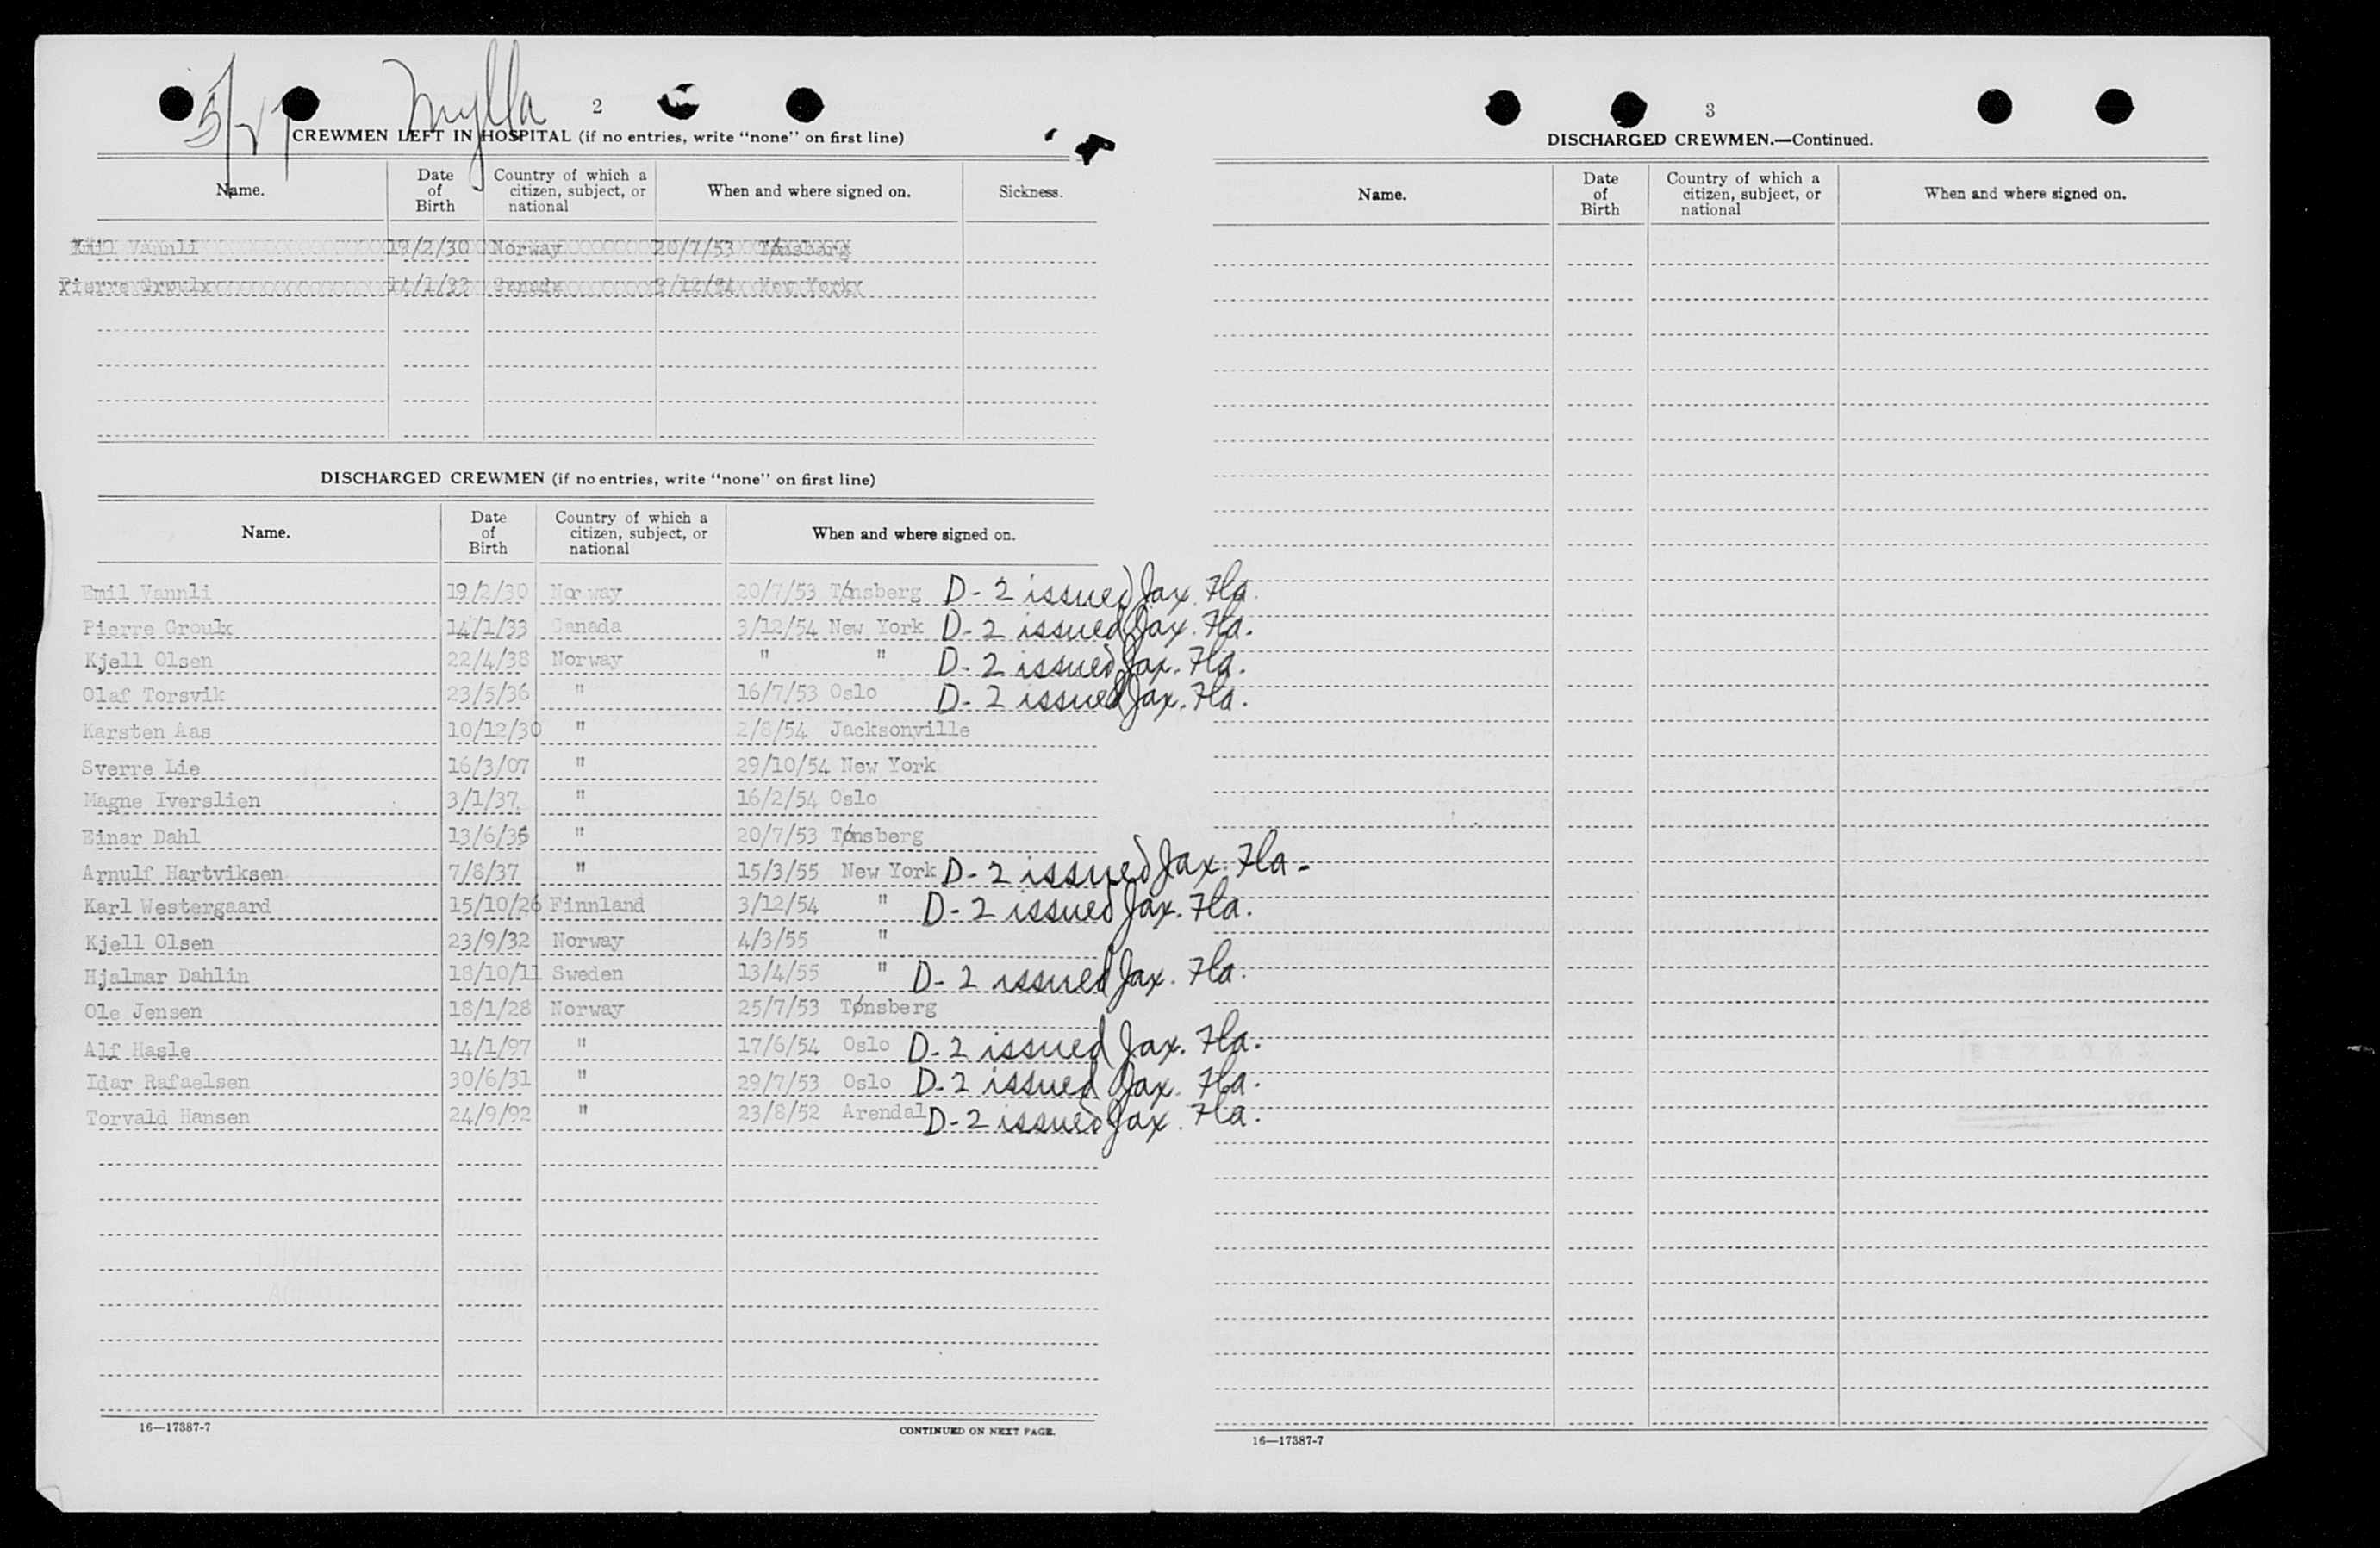 5/27 Mylla
2
CREWMEN LEFT IN HOSPITAL (if no entries, write "none" on first line)
Name. Date of Birth Country of which a citizen, subject, or national When and where signed on. Sickness.
Emil Vannli 19/2/30 Norway 20/7/53 Tønsberg
Pierre Groulx 14/1/33 Canada 3/12/54 New York
DISCHARGED CREWMEN (if no entries, write "none" on first line)
Name. Date of Birth Country of which a citizen, subject, or national When and where signed on.
Emil Vannli 19/2/30 Norway 20/7/53 Tønsberg D-2 issued Jax. Fla.
Pierre Groulx 14/1/33 Canada 3/12/54 New York D-2 issued Jax. Fla.
Kjell Olsen 22/4/38 Norway " " D-2 issued Jax. Fla.
Olaf Torsvik 23/5/36 " 16/7/53 Oslo D-2 issued Jax. Fla.
Karsten Aas 10/12/30 " 2/8/54 Jacksonville
Sverre Lie 16/3/07 " 29/10/54 New York
Magne Iverslien 3/1/37 " 16/2/54 Oslo
Einar Dahl 13/6/36 " 20/7/53 Tønsberg
Arnulf Hartviksen 7/8/37 " 15/3/55 New York D-2 issued Jax. Fla.
Karl Westergaard 15/10/26 Finnland 3/12/54 " D-2 issued Jax. Fla.
Kjell Olsen 23/9/32 Norway 4/3/55 "
Hjalmar Dahlin 18/10/11 Sweden 13/4/55 " D-2 issued Jax. Fla.
Ole Jensen 18/1/28 Norway 25/7/53 Tønsberg
Alf Hasle 14/1/97 " 17/6/54 Oslo D-2 issued Jax. Fla.
Idar Rafaelsen 30/6/31 " 29/7/53 Oslo D-2 issued Jax. Fla.
Torvald Hansen 24/9/92 " 23/8/52 Arendal D-2 issued Jax. Fla.
16—17387-7 CONTINUED ON NEXT PAGE.
3
DISCHARGED CREWMEN.—Continued.
Name. Date of Birth Country of which a citizen, subject, or national When and where signed on.
16—17387-7